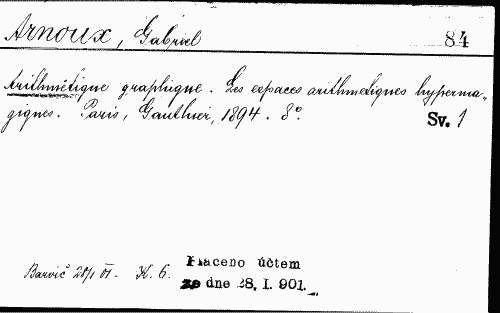 Arnoux, Gabriel 84
Arithmétique graphique. Les espaces arithmetiques hyperma-
giques. Paris, Gauthier, 1894. 8°. Sv. 1
Barvič 28/1 01. K. 6. Placeno účtem
ze dne 28. I. 901.